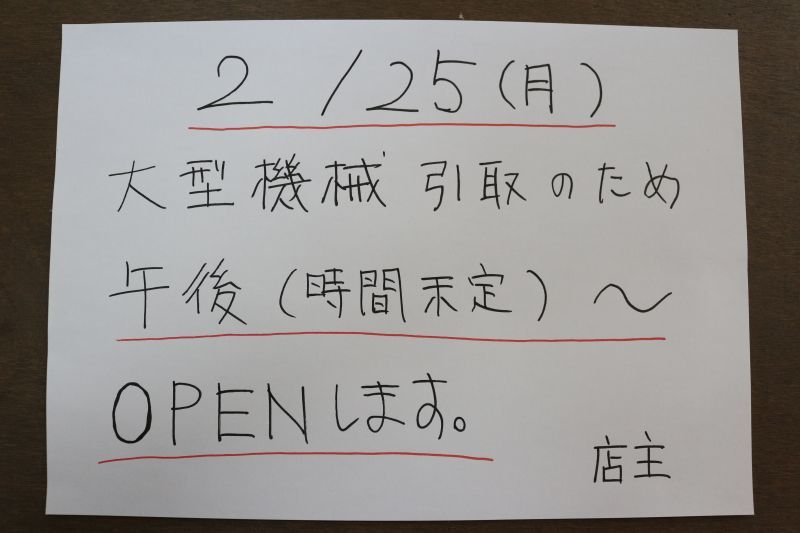 2/25(月)
大型機械引取のため
午後(時間未定)~
OPENします。
店主